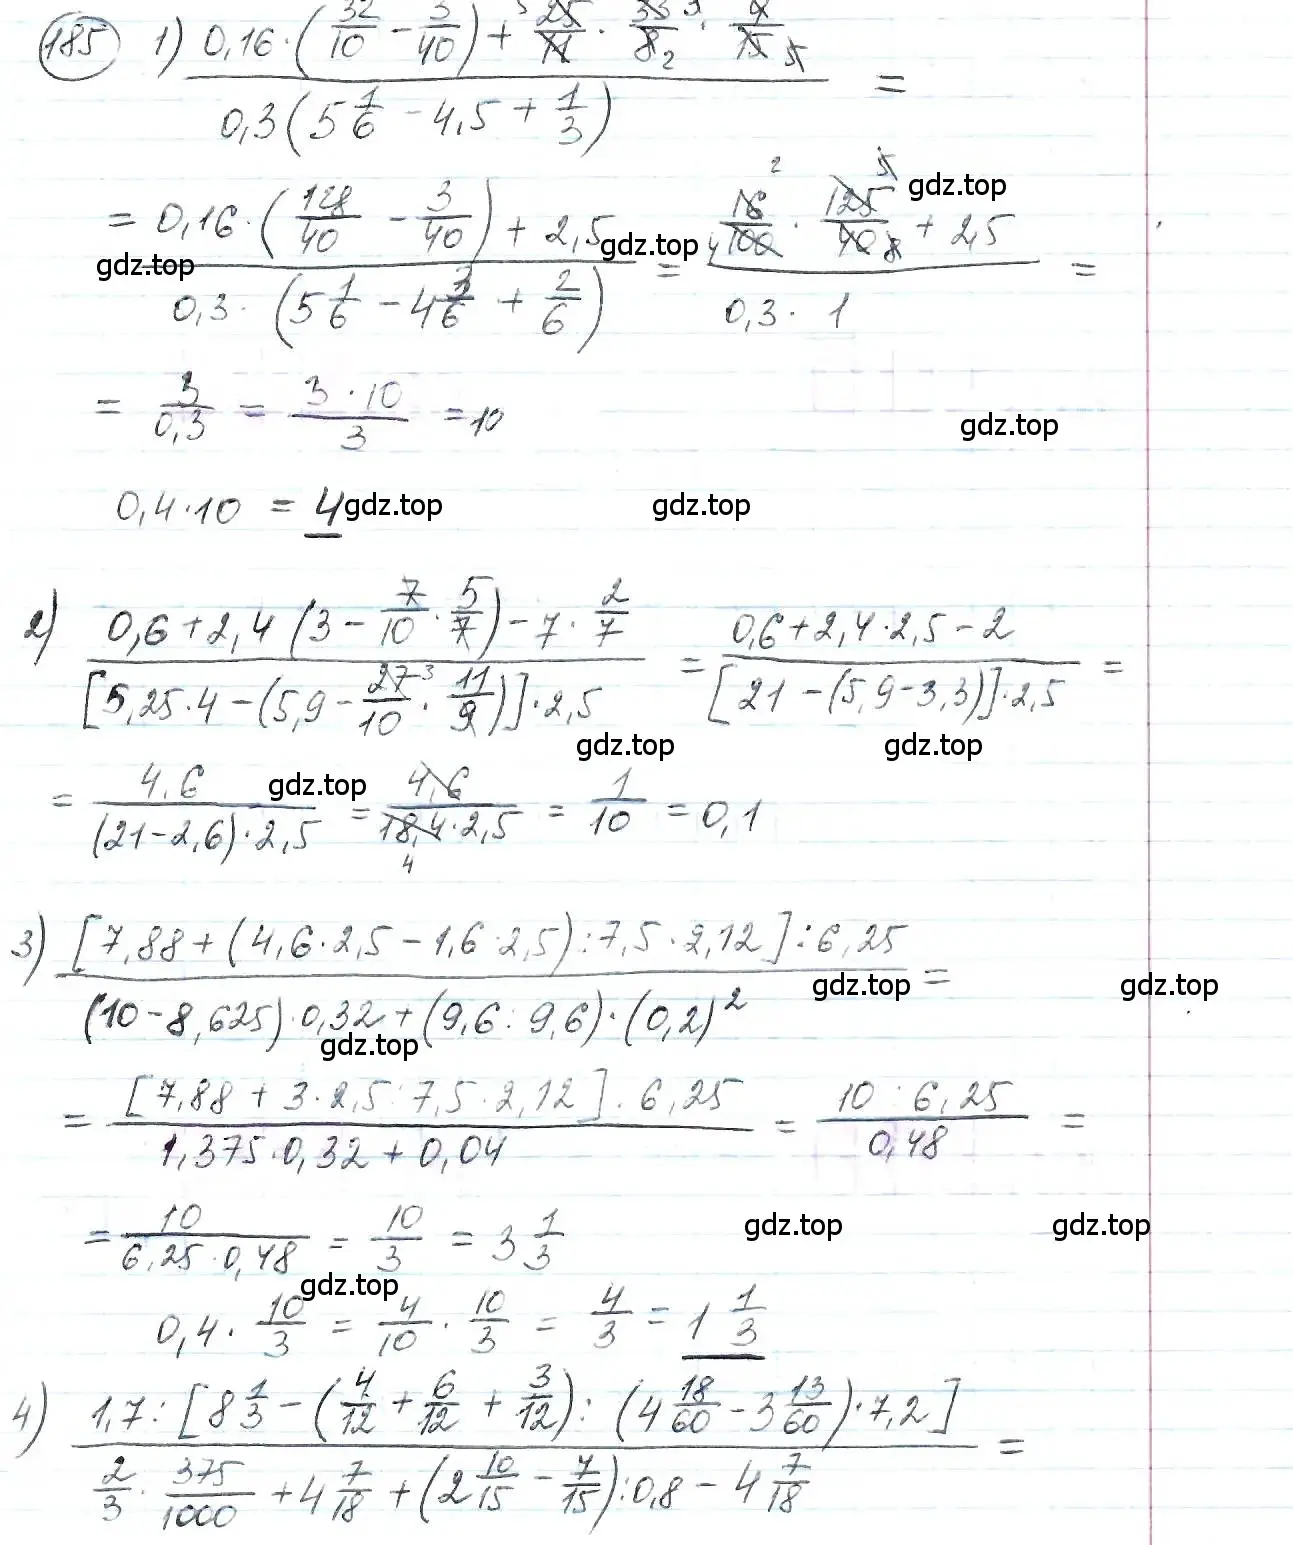 185 1) (0,16·(32/10 − 3/40) + 25/11 · 33/8 · 4/15) / (0,3(5 1/6 − 4,5 + 1/3)) =
= (0,16·(128/40 − 3/40) + 2,5) / (0,3·(5 1/6 − 4 3/6 + 2/6)) = (16/100 · 125/40 + 2,5) / (0,3·1) =
gdz.top gdz.top gdz.top
= 3/0,3 = (3·10)/3 = 10
gdz.top
0,4·10 = 4
gdz.top gdz.top
2) (0,6 + 2,4(3 − 7/10 · 5/7) − 7 · 2/7) / ([5,25·4 − (5,9 − 27/10 · 11/9)]·2,5) = (0,6 + 2,4·2,5 − 2) / ([21 − (5,9 − 3,3)]·2,5) =
gdz.top gdz.top
= 4,6 / ((21 − 2,6)·2,5) = 4,6 / (18,4·2,5) = 1/10 = 0,1
gdz.top
3) ([7,88 + (4,6·2,5 − 1,6·2,5):7,5·2,12]:6,25) / ((10 − 8,625)·0,32 + (9,6:9,6)·(0,2)²) =
gdz.top gdz.top gdz.top
= ([7,88 + 3·2,5:7,5·2,12]·6,25) / (1,375·0,32 + 0,04) = (10:6,25) / 0,48 =
= 10 / (6,25·0,48) = 10/3 = 3 1/3
gdz.top gdz.top gdz.top
0,4 · 10/3 = 4/10 · 10/3 = 4/3 = 1 1/3
4) (1,7:[8 1/3 − (4/12 + 6/12 + 3/12):(4 18/60 − 3 13/60)·7,2]) / (2/3 · 375/1000 + 4 7/18 + (2 10/15 − 7/15):0,8 − 4 7/18) =